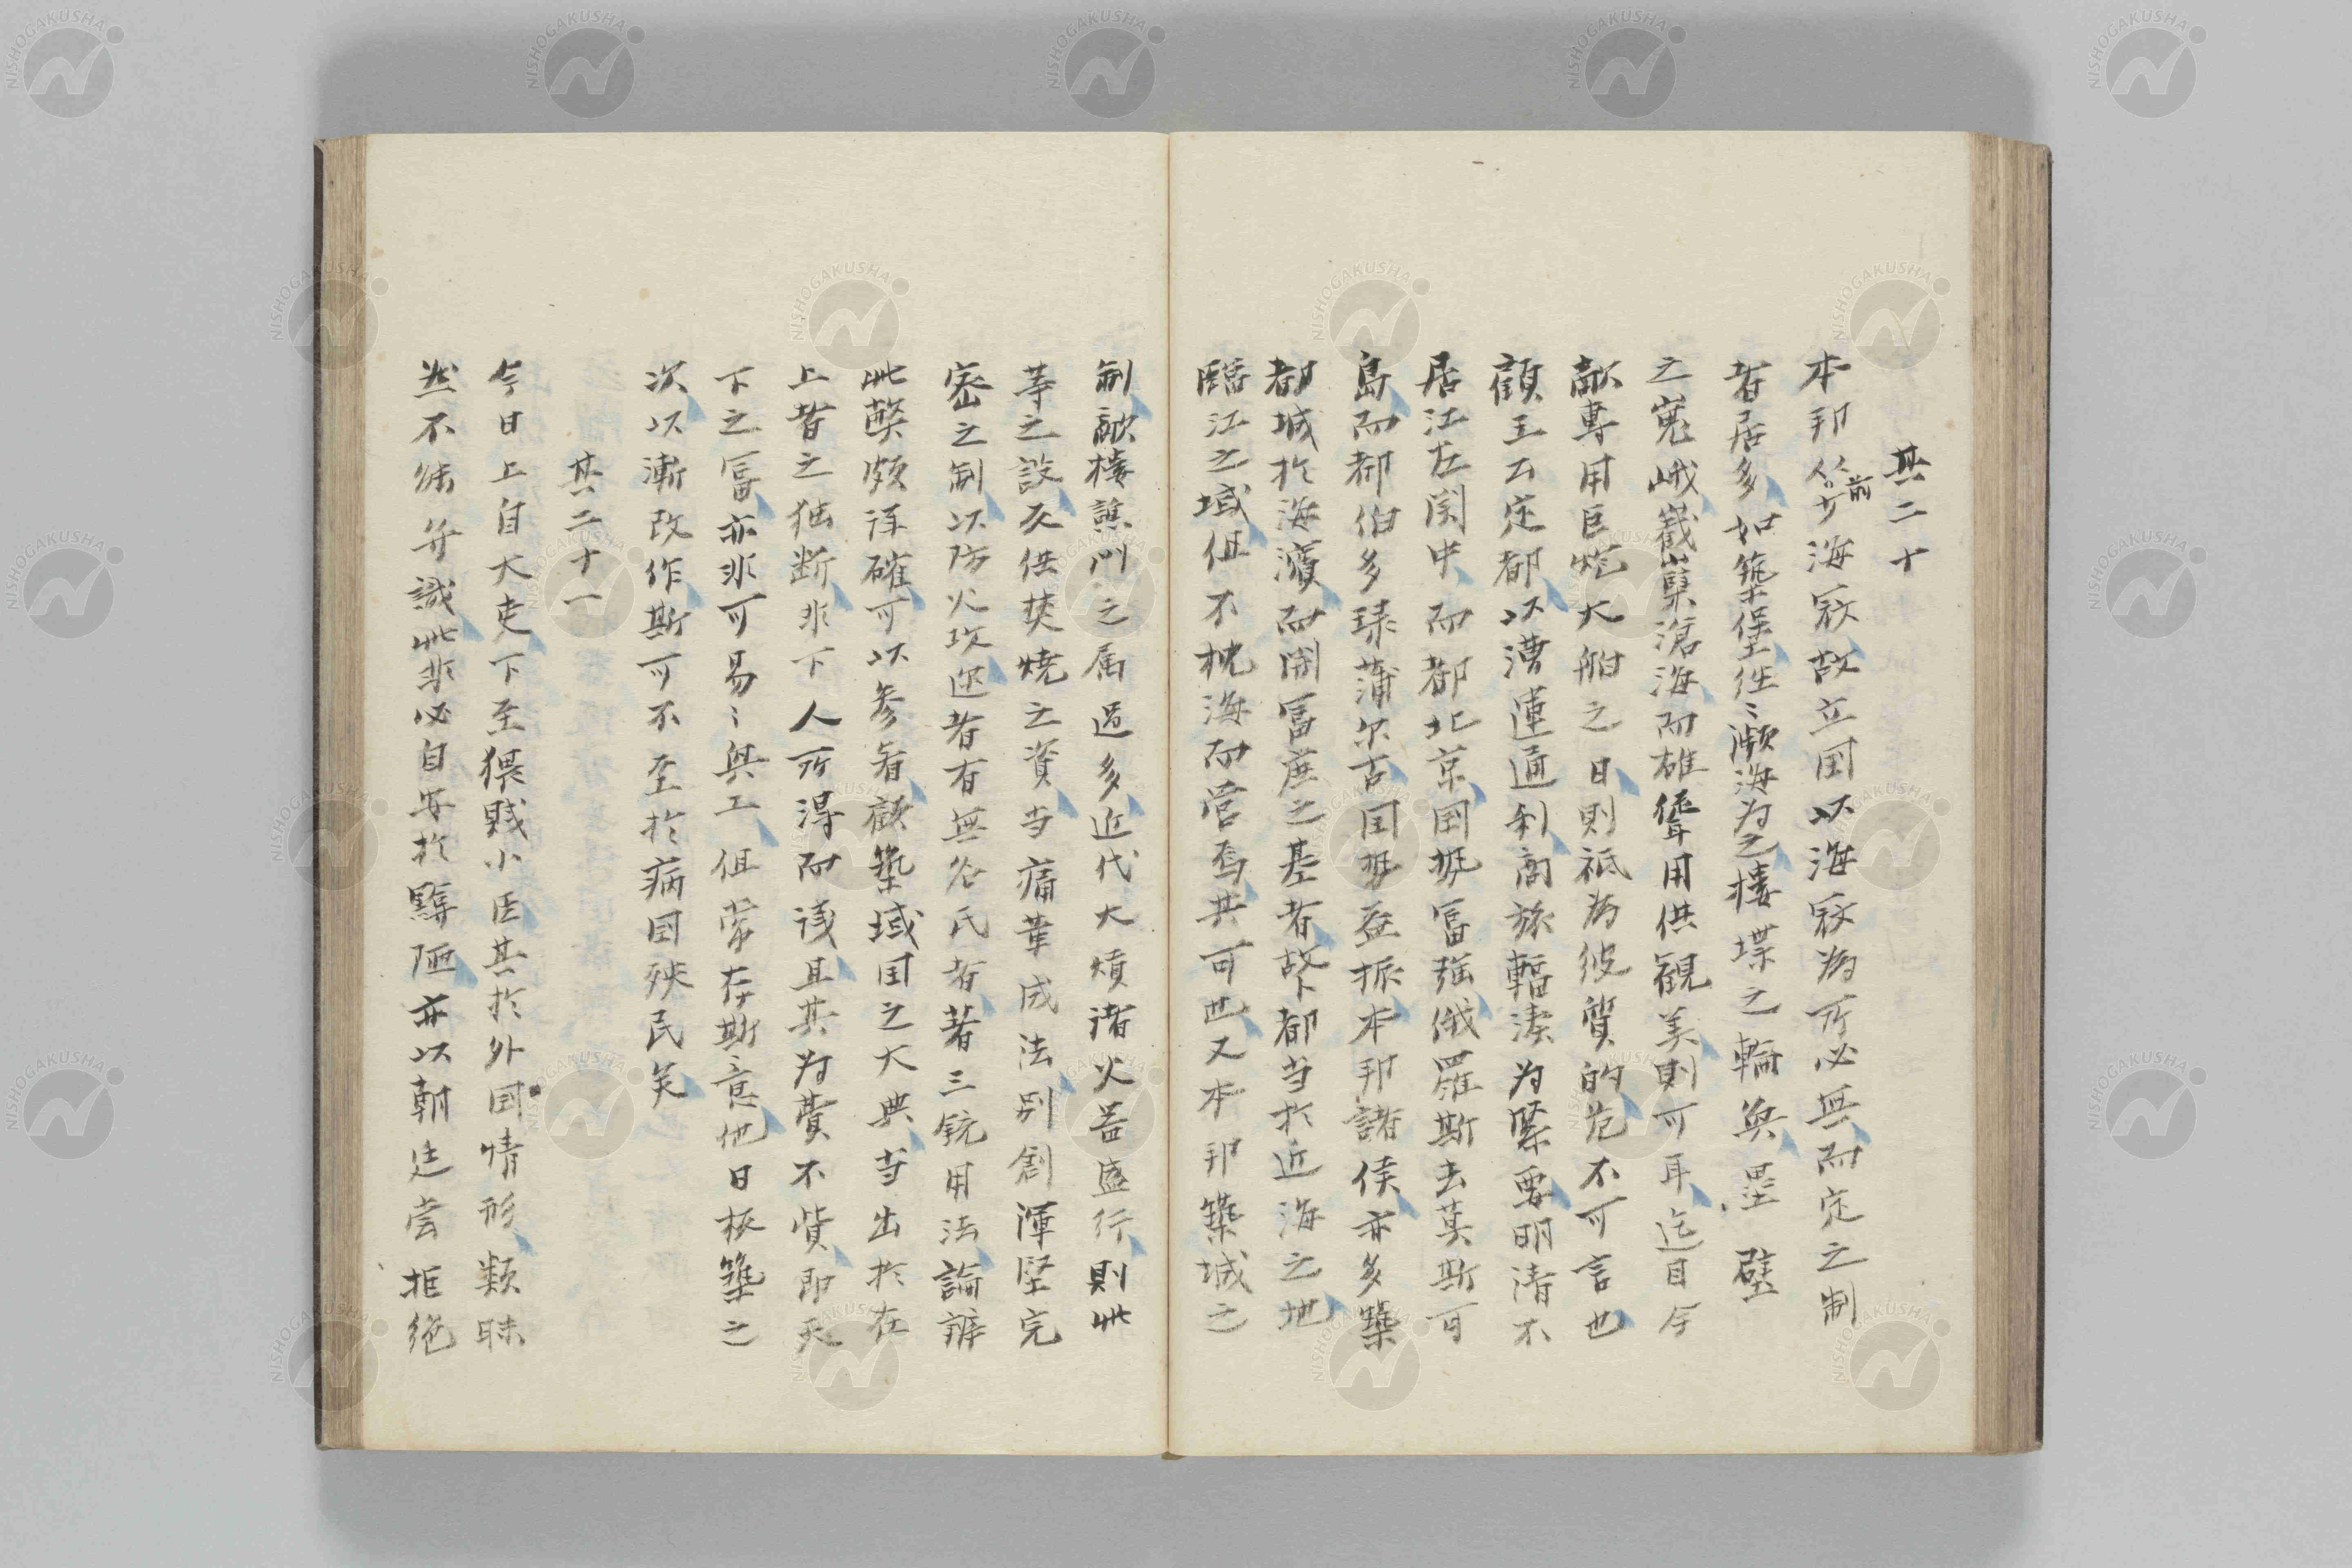 其二十
本邦前少海寇故立国以海寇為所必無而定之制
者居多如築堡往〻瀕海为之楼堞之輪奐塁壁
之嵬峨巀嶪滄海而雄聳用供観美則可耳迄目今
敵専用巨炮大舶之日則祗為彼質的危不可言也
顧王公定都以漕運通利商旅輻湊为緊要明清不
居江左関中而都北京国勢冨強俄羅斯去莫斯可
島而都伯多琭蒲尓古国勢益振本邦諸侯亦多築
都城於海濱而開冨庶之基者故卜都当於近海之地
臨江之域但不枕海而営焉其可也又本邦築城之
制敵楼譙門之属過多近代大熕諸火器盛行則此
等之設反供焚焼之資当痛革成法別創渾堅完
密之制以防火攻迩者有無名氏者著三銃用法論辨
此獘頗詳確可以参看顧築域国之大典当出於在
上者之独断非下人所得而議且其为費不貲即天
下之冨亦非可易〻興工但常在斯意他日板築之
次以漸改作斯可不至於病国殃民矣
其二十一
今日上自大吏下至猥賤小臣其於外国情形類昧
然不併弁識此非必自安於黯陋亦以朝廷嘗拒絶
NISHOGAKUSHA